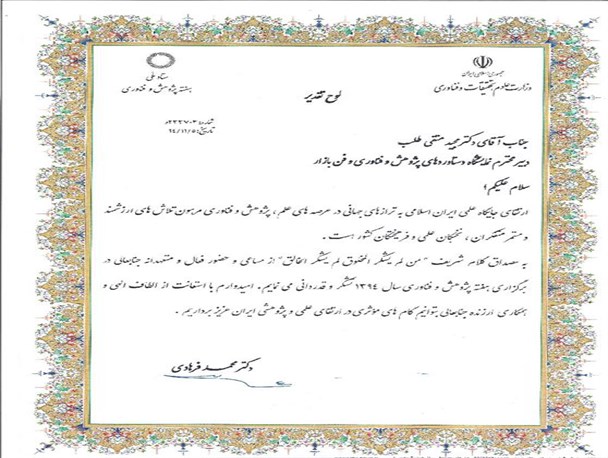 جمهوری اسلامی ایران
وزارت علوم، تحقیقات و فناوری
ستاد ملی
هفته پژوهش و فناوری
لوح تقدیر
شماره: ۲۳۲۷۰۳/و
تاریخ: ۹۴/۱۱/۵
جناب آقای دکتر مجید متقی طلب
دبیر محترم نمایشگاه دستاوردهای پژوهش و فناوری و فن بازار
سلام علیکم؛
ارتقای جایگاه علمی ایران اسلامی به ترازهای جهانی در عرصه های علم، پژوهش و فناوری مرهون تلاش های ارزشمند
و مستمر متفکران، نخبگان علمی و فرهیختگان کشور است.
به مصداق کلام شریف "من لم یشکر المخلوق لم یشکر الخالق" از مساعی و حضور فعال و متعهدانه جنابعالی در
برگزاری هفته پژوهش و فناوری سال ۱۳۹۴ تشکر و قدردانی می نمایم. امیدوارم با استعانت از الطاف الهی و
همکاری ارزنده جنابعالی بتوانیم گام های مؤثری در ارتقای علمی و پژوهشی ایران عزیز برداریم.
دکتر محمد فرهادی